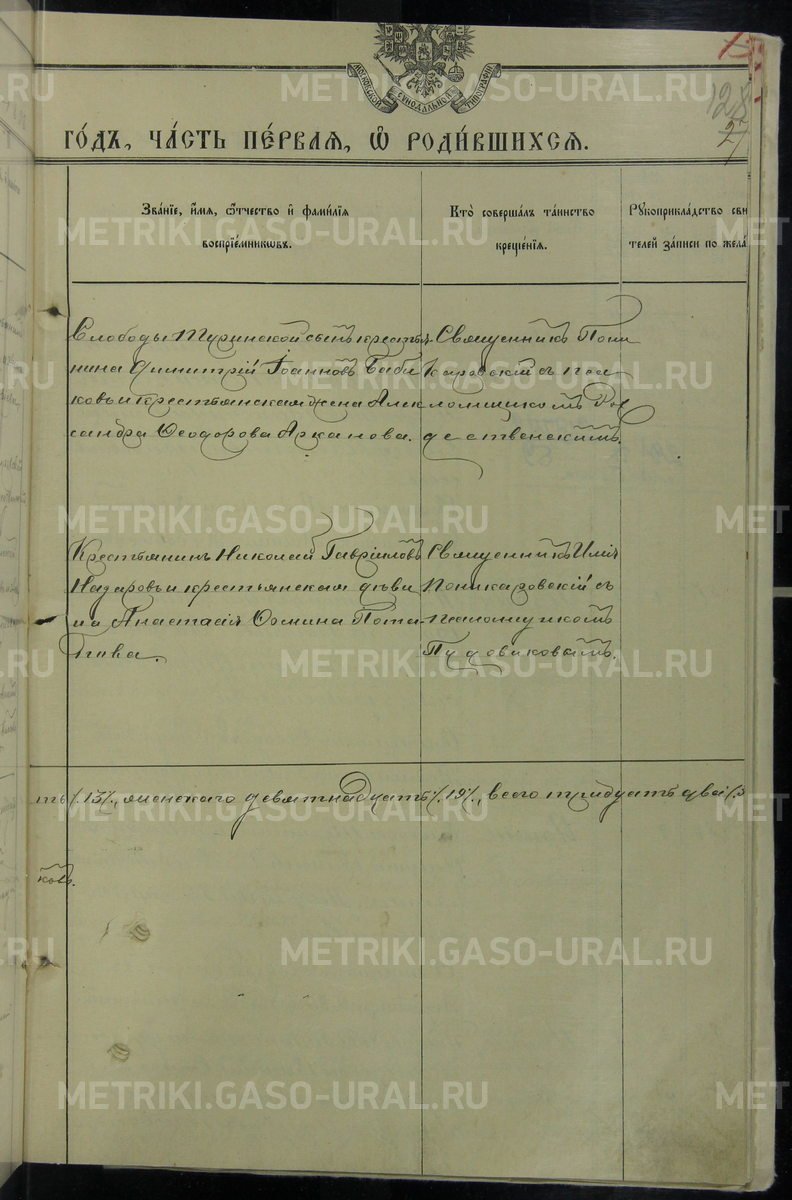 МОСКОВСКОЙ СѴНОДАЛЬНОЙ ТИПОГРАФІИ
27
ГО́ДЪ, ЧА́СТЬ ПЕ́РВАЯ, Ѽ РОДИ́ВШИХСЯ.
Зва́нїе, и҆́мѧ, ѻ҆́тчество и҆ фами́лїѧ
воспрїе́мниковъ.
Кто̀ соверша́лъ та́инство
креще́нїѧ.
Рꙋкоприкла́дство сви
те́лей за́писи по жела́
Слободы Туринской сынъ крестья-
нина Димитрій Іоанновъ Баби
ковъ и крестьянская жена Алек
сандра Ѳеодорова Арканова.
Священникъ Пони
каровскій съ пса
ломщикомъ Рож
дественскимъ.
Крестьянинъ Николай Гавріиловъ
Назаровъ и крестьянская дѣви
ца Анастасія Ѳомина Пота-
Священникъ Илія
Поникаровскій съ
псаломщикомъ
Пудовиковымъ.
/.13/., женскаго девятнадцать /.19/., всего тридцать два /.3
ковъ.
METRIKI.GASO-URAL.RU